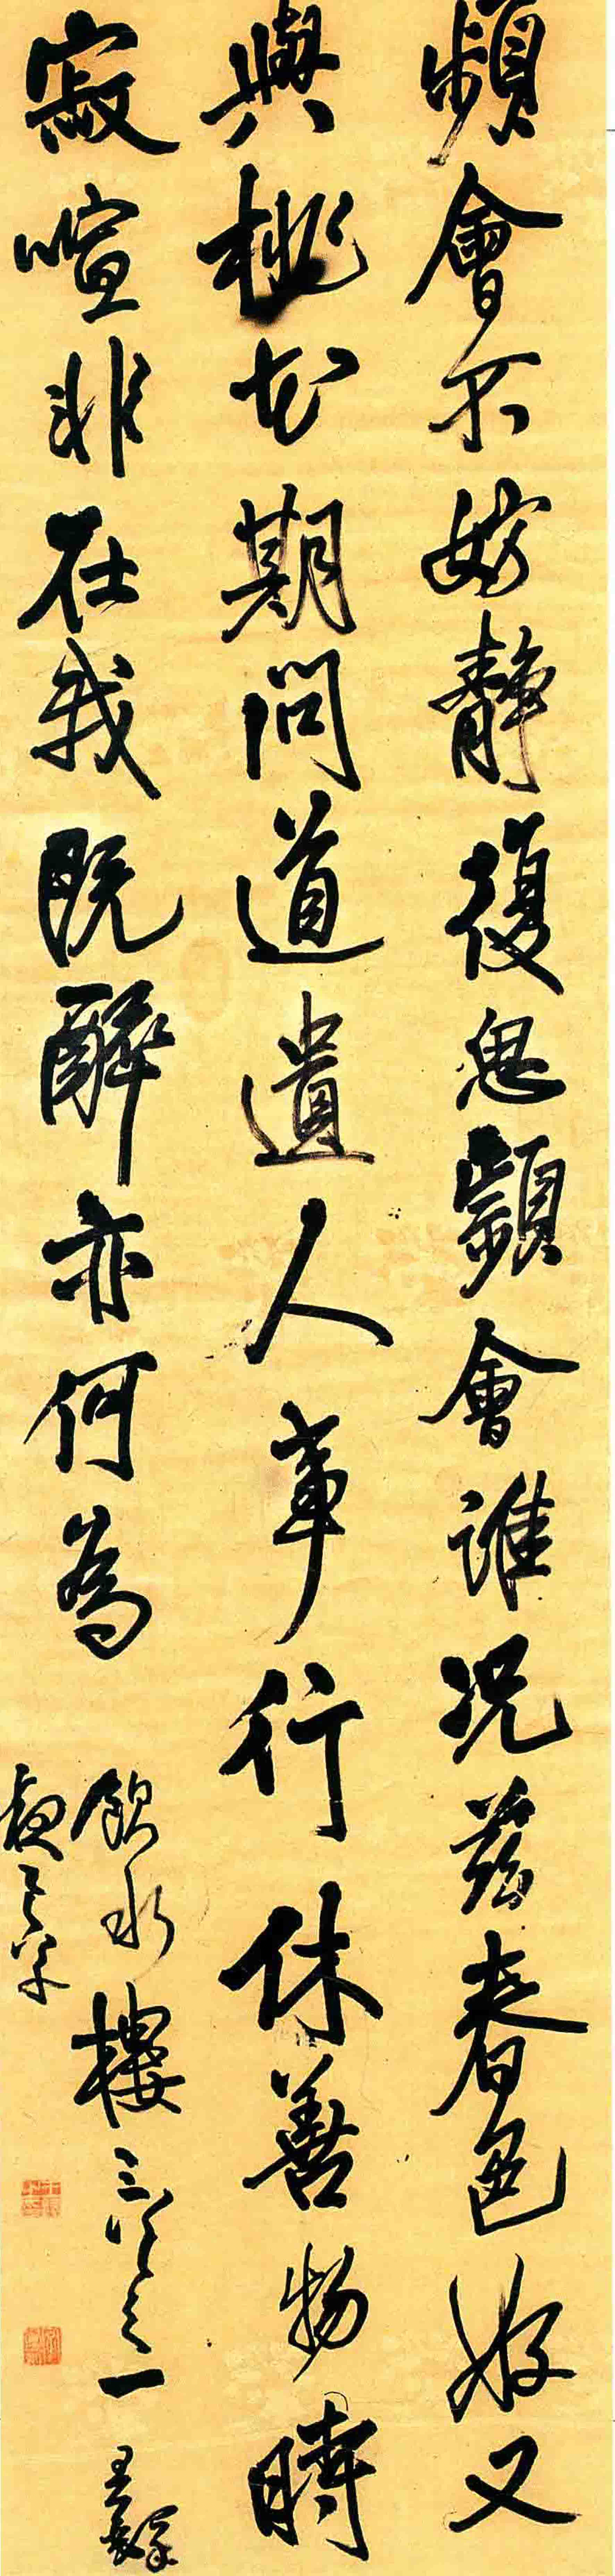 頻會不妨靜復思頻會誰況茲春色好又
與桃花期問道遺人事行休善物時
寂喧非在我既醉亦何為
飲水樓三之一 王鐸